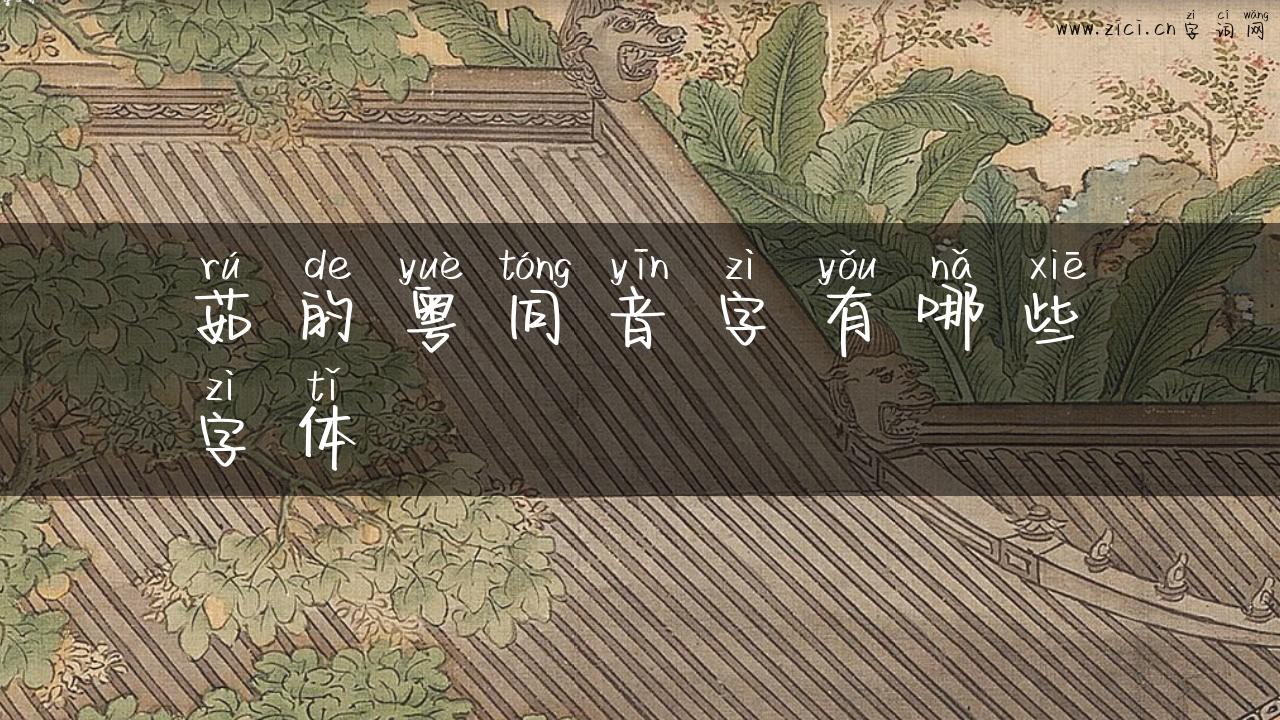 zì cí wǎng
www.zici.cn 字词网
rú de yuè tóng yīn zì yǒu nǎ xiē
茹的粤同音字有哪些
zì tǐ
字体